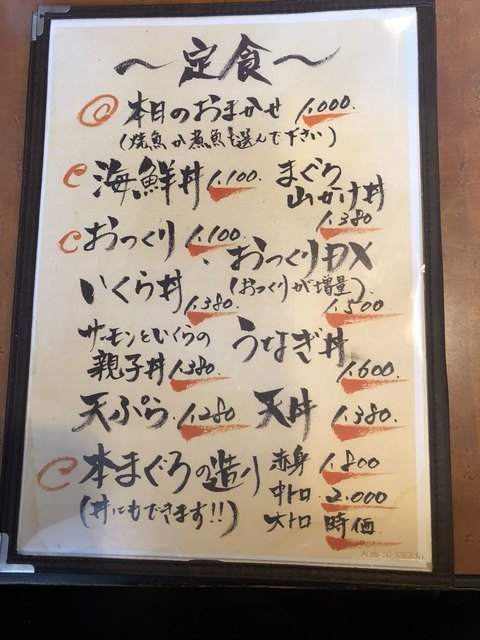 ～定食～
本日のおまかせ 1.000.
(焼魚か煮魚を選んで下さい)
海鮮丼 1.100.
まぐろ
山かけ丼
1.380
おっくり 1.100.
おっくりDX
(おっくりが増量)
1.500
いくら丼 1.380.
サーモンといくらの
親子丼 1.380.
うなぎ丼
1.600
天ぷら 1.280
天丼 1.380.
本まぐろの造り
(丼にもできます!!)
赤身 1.800
中トロ 2.000
大トロ 時価